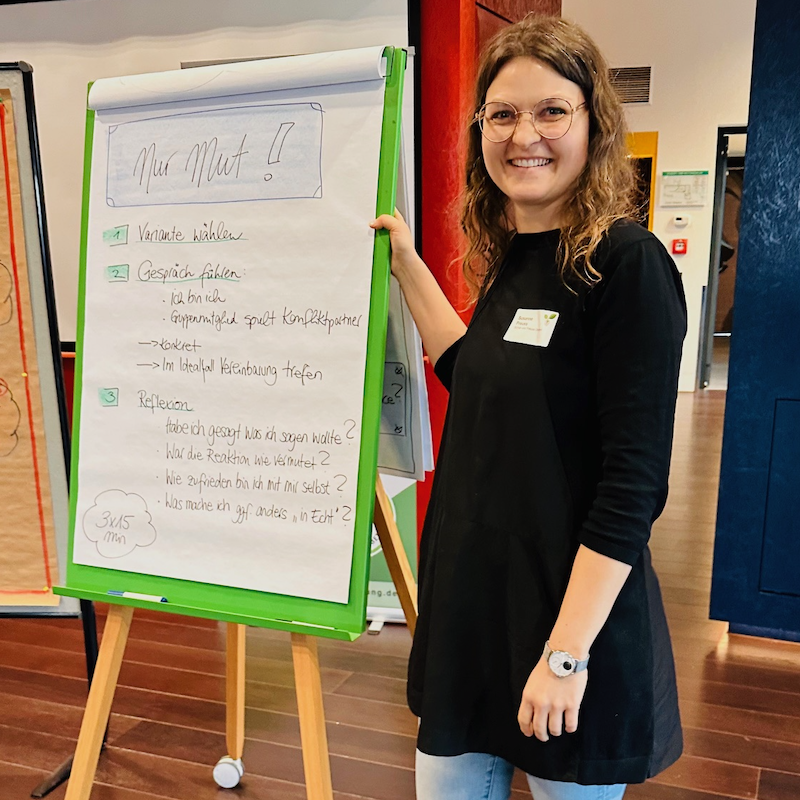 Nur Mut!
1 Variante wählen
2 Gespräch führen:
· Ich bin ich
· Gruppenmitglied spielt Konfliktpartner
→ konkret
→ Im Idealfall Vereinbarung treffen
3 Reflexion
Habe ich gesagt was ich sagen wollte?
· War die Reaktion wie vermutet?
· Wie zufrieden bin ich mit mir selbst?
· Was mache ich ggf anders „in Echt"?
3x15
min